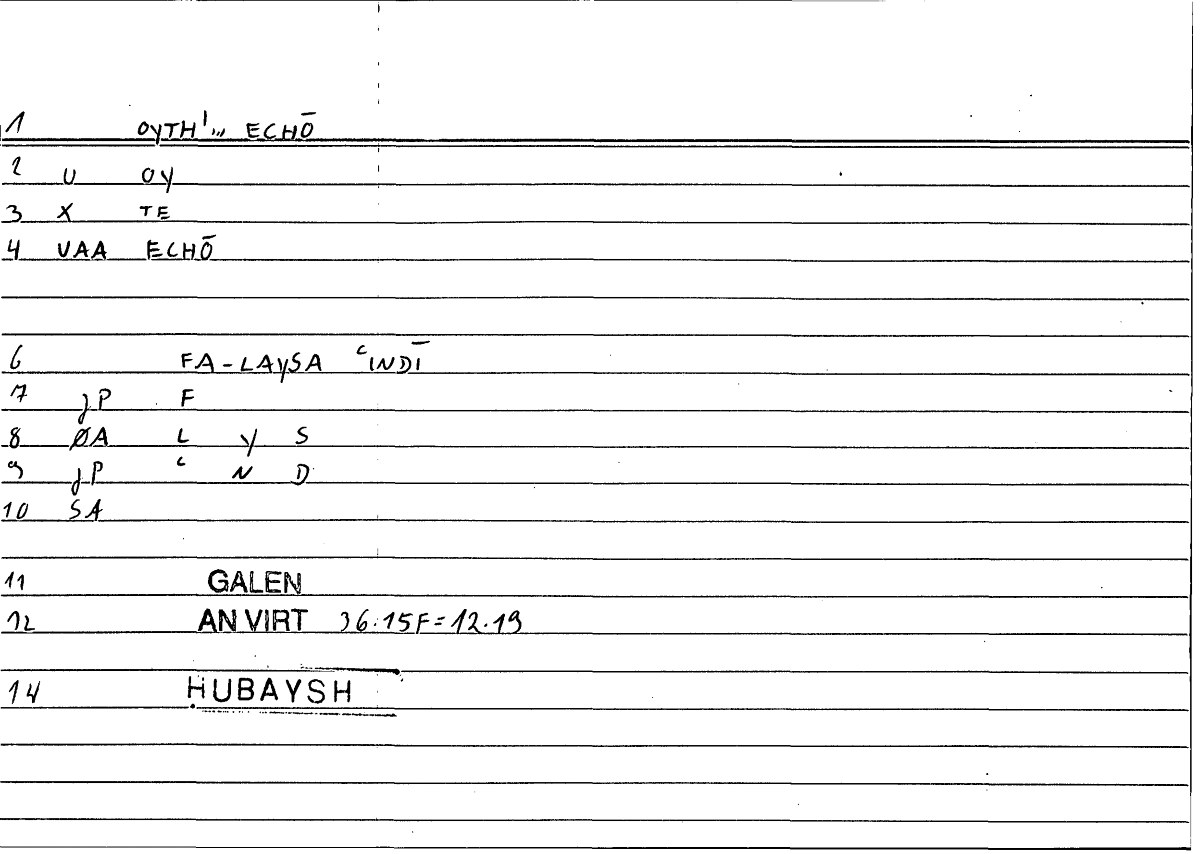 1 OYTH'... ECHŌ
2 U OY
3 X TE
4 VAA ECHŌ
6 FA-LAYSA ʿINDĪ
7 JP F
8 ØA L Y S
9 JP ʿ N D
10 SA
11 GALEN
12 AN VIRT 36.15F=12.19
14 ḤUBAYSH